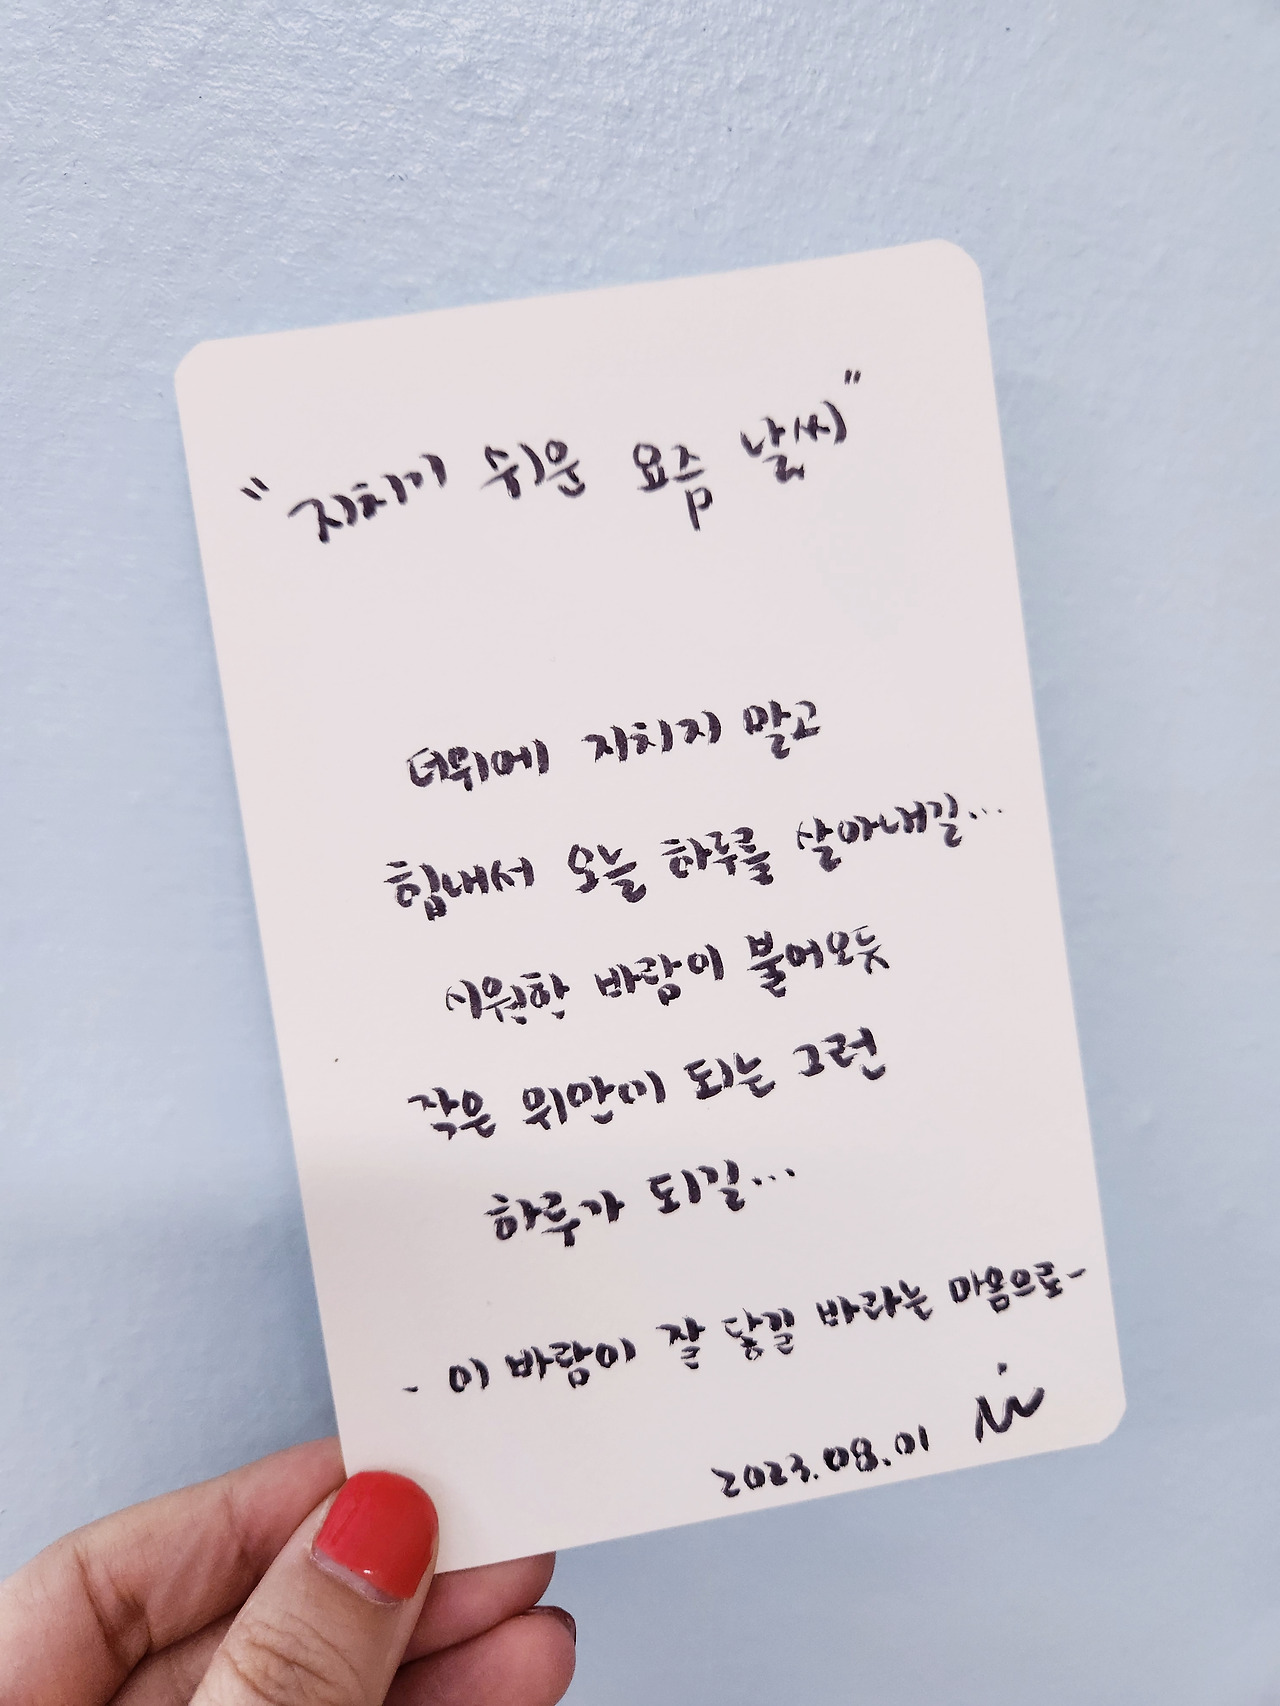 "지치기 쉬운 요즘 날씨"
더위에 지치지 말고
힘내서 오늘 하루를 살아내길...
시원한 바람이 불어오듯
작은 위안이 되는 그런
하루가 되길...
- 이 바람이 잘 닿길 바라는 마음으로-
2023.08.01